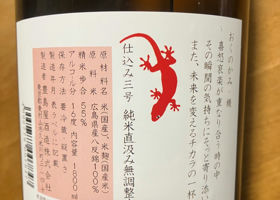 おくのかみ 様
喜怒哀楽が重なり合う時の中
その瞬間の気持ちにそっと寄り添い
また、未来を変えるチカラの一杯
仕込み三号 純米直汲み無調整
原材料名 米(国産)、米麹(国産米)
原料米 広島県産八反錦100%
精米歩合 55%
アルコール分 16度 内容量 1800ml
保存方法 要冷蔵
製造年月
製造者 豊島屋酒造株式会社